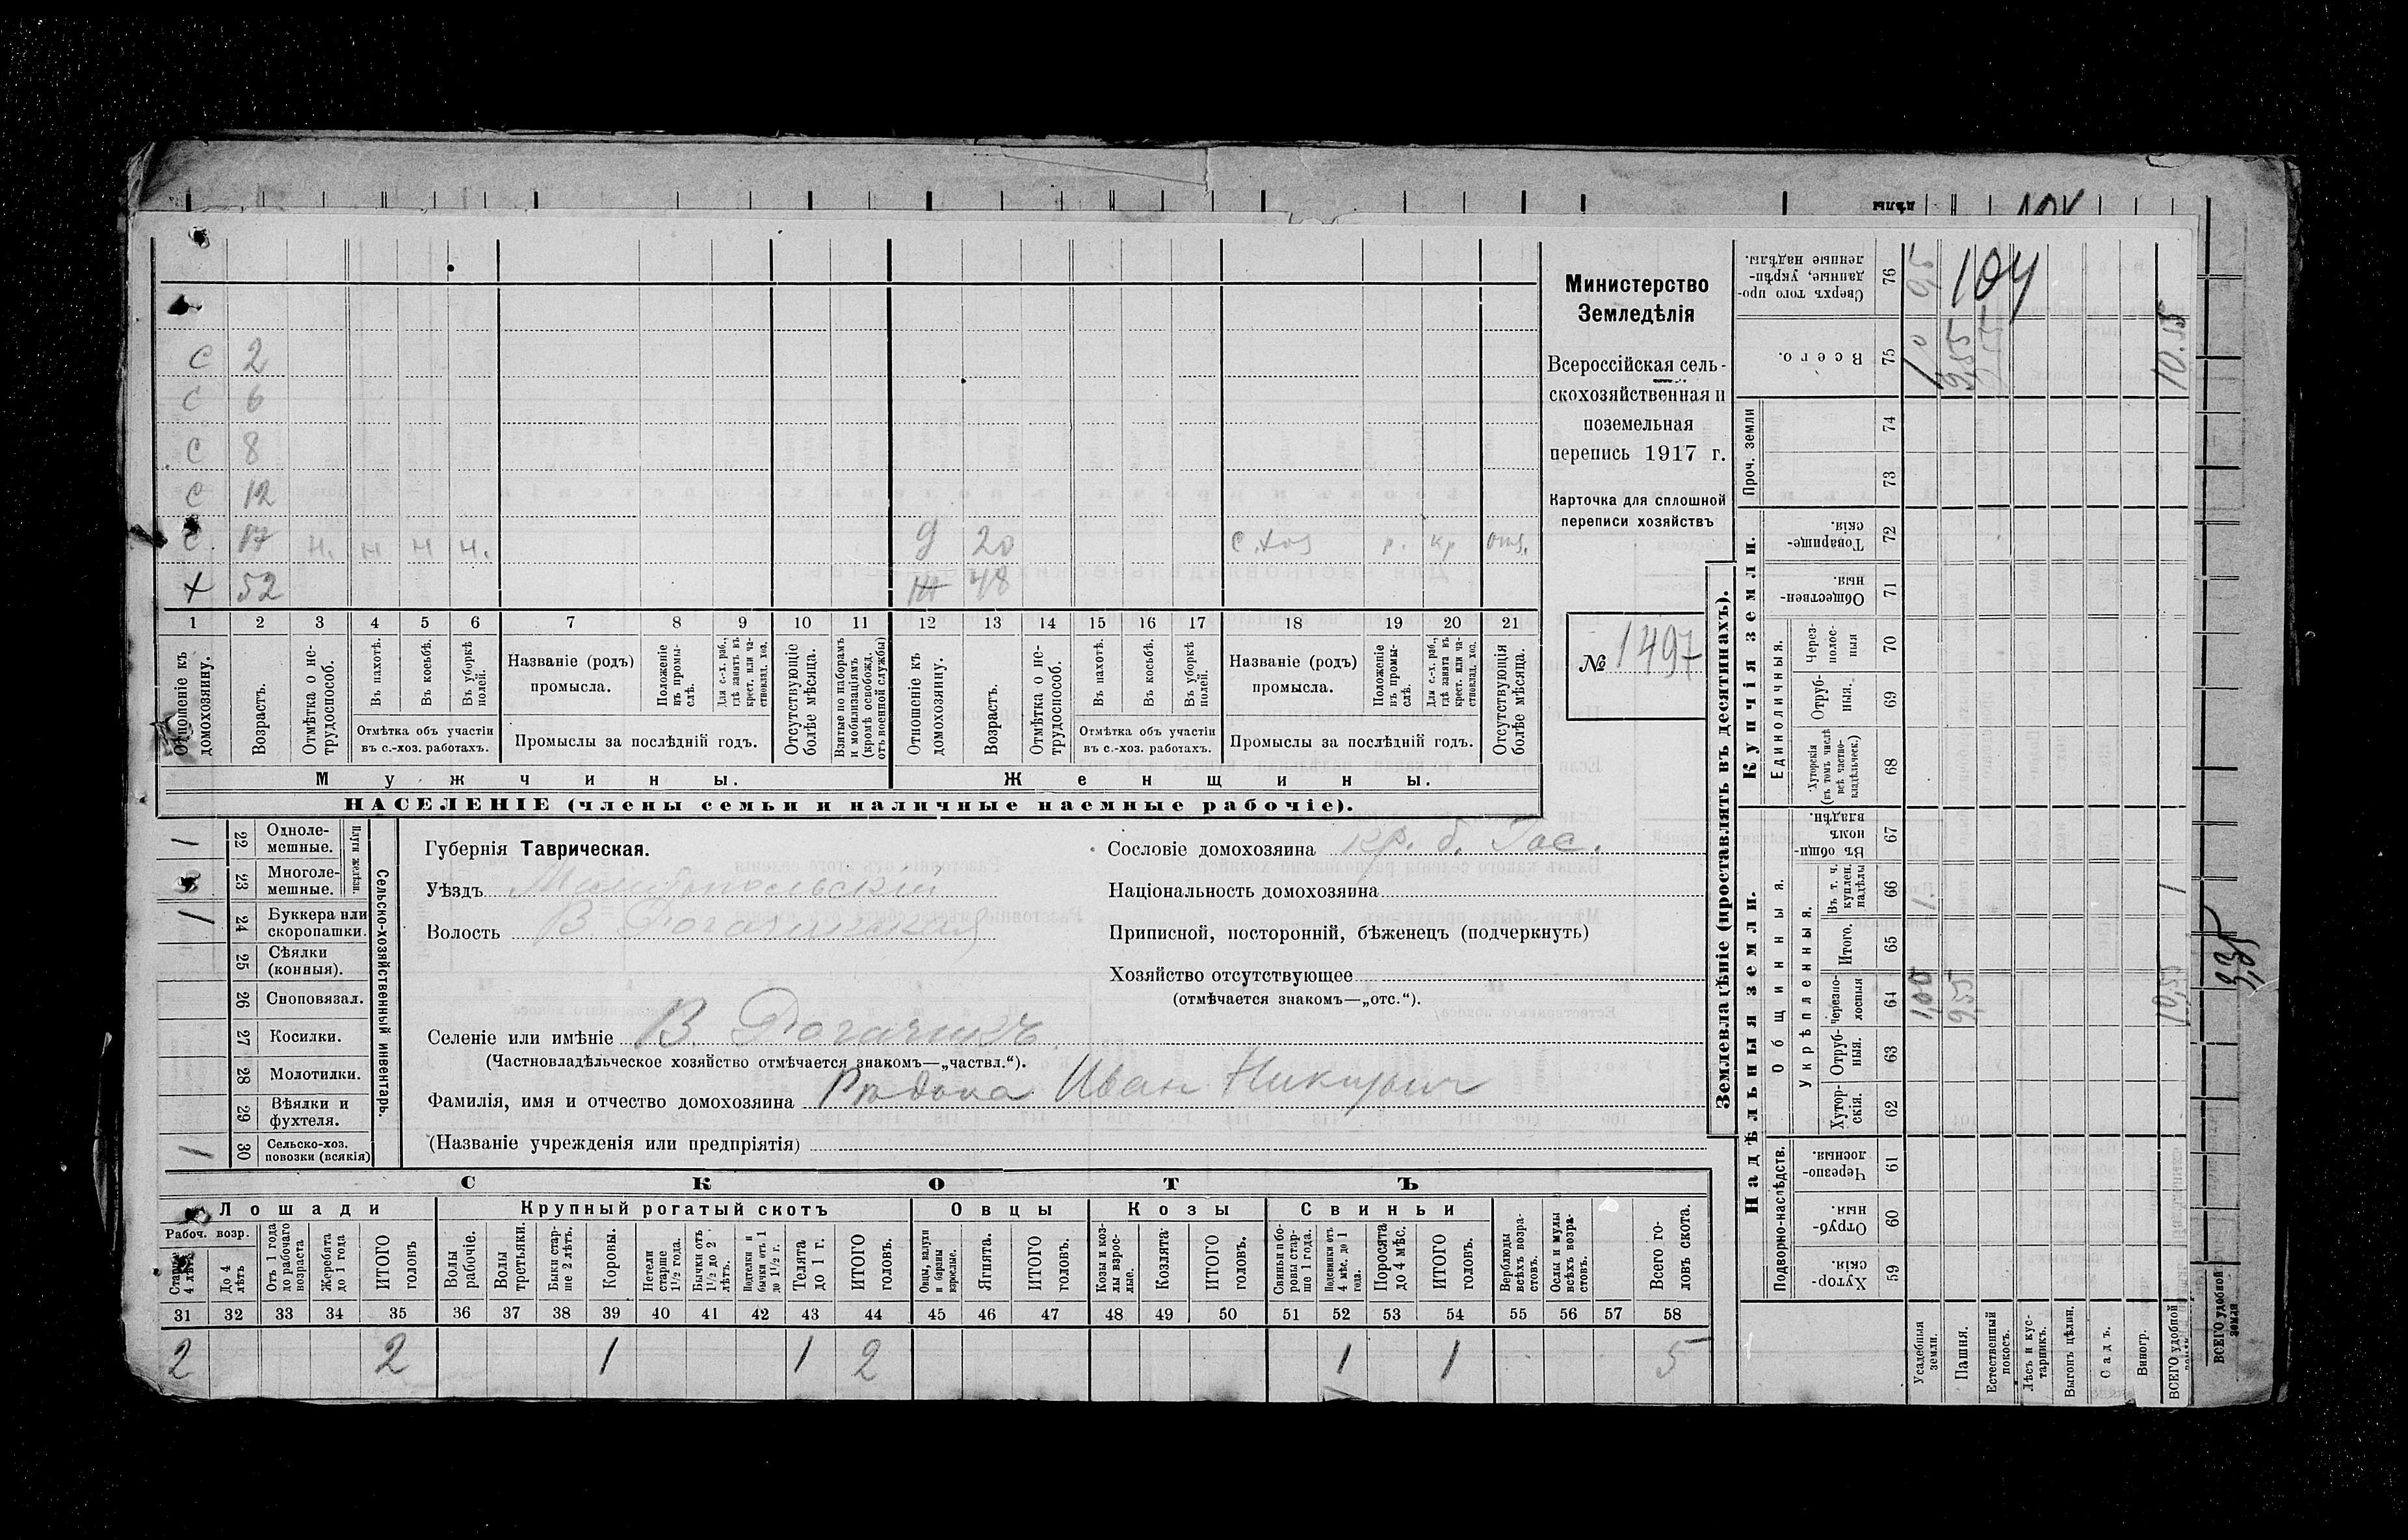 дѣлы
104
С 2
С 6
С 8
С 12
С. 17 н. н н н. д 20 с.хоз р. кр отд.
х 52 ж 48
1 2 3 4 5 6 7 8 9 10 11 12 13 14 15 16 17 18 19 20 21
Отношеніе къ домохозяину.
Возрастъ.
Отмѣтка о нетрудоспособ.
Въ пахотѣ.
Въ косьбѣ.
Въ уборкѣ полей.
Отмѣтка объ участіи въ с.-хоз. работахъ.
Названіе (родъ) промысла.
Положеніе въ промыслѣ.
Для с.-х. раб., гдѣ занятъ въ крест. или частновлад. хоз.
Промыслы за послѣдній годъ.
Отсутствующіе болѣе мѣсяца.
Взятые по наборамъ и мобилизаціямъ (кромѣ освобожд. отъ военной службы)
Отношеніе къ домохозяину.
Возрастъ.
Отмѣтка о нетрудоспособ.
Въ пахотѣ.
Въ косьбѣ.
Въ уборкѣ полей.
Отмѣтка объ участіи въ с.-хоз. работахъ.
Названіе (родъ) промысла.
Положеніе въ промыслѣ.
Для с.-х. раб., гдѣ занята въ крест. или частновлад. хоз.
Промыслы за послѣдній годъ.
Отсутствующія болѣе мѣсяца.
Мужчины. Женщины.
НАСЕЛЕНІЕ (члены семьи и наличные наемные рабочіе).
Министерство
Земледѣлія
Всероссійская сель-
скохозяйственная и
поземельная
перепись 1917 г.
Карточка для сплошной
переписи хозяйствъ
№ 1497
1 22 Одноле-мешные.
23 Многоле-мешные.
Плуги желѣзн.
1 24 Буккера или скоропашки.
25 Сѣялки (конныя).
26 Сноповязал.
27 Косилки.
28 Молотилки.
29 Вѣялки и фухтеля.
1 30 Сельско-хоз. повозки (всякія)
Сельско-хозяйственный инвентарь.
Губернія Таврическая.
Уѣздъ Мелитопольскій
Волость В. Рогачикская
Селеніе или имѣніе В. Рогачикъ
(Частновладѣльческое хозяйство отмѣчается знакомъ—„частвл.“).
Фамилія, имя и отчество домохозяина Рѣдька Иван Никит.
(Названіе учрежденія или предпріятія)
Сословіе домохозяина кр. б. Гос.
Національность домохозяина
Приписной, посторонній, бѣженецъ (подчеркнуть)
Хозяйство отсутствующее
(отмѣчается знакомъ—„отс.“).
СКОТЪ
Лошади Крупный рогатый скотъ Овцы Козы Свиньи
Рабоч. возр.
Старше 4 лѣтъ
До 4 лѣтъ
Отъ 1 года до рабочаго возраста
Жеребята до 1 года
ИТОГО головъ
Волы рабочіе.
Волы третьяки.
Быки старше 2 лѣтъ.
Коровы.
Нетели старше 1½ года.
Бычки отъ 1½ до 2 лѣтъ.
Подтелки и бычки отъ 1 до 1½ г.
Телята до 1 г.
ИТОГО головъ.
Овцы, валухи и бараны взрослые.
Ягнята.
ИТОГО головъ.
Козы и козлы взрослые.
Козлята
ИТОГО головъ.
Свиньи и боровы старше 1 года.
Подсвинки отъ 4 мѣс. до 1 года.
Поросята до 4 мѣс.
ИТОГО головъ.
Верблюды всѣхъ возрастовъ.
Ослы и мулы всѣхъ возрастовъ.
Всего головъ скота.
31 32 33 34 35 36 37 38 39 40 41 42 43 44 45 46 47 48 49 50 51 52 53 54 55 56 57 58
2 2 1 1 2 1 1 5
Землевладѣніе (проставлять въ десятинахъ).
Купчія земли.
Надѣльныя земли.
Сверхъ того проданные, укрѣпленные надѣлы. 76
Всего. 75
Проч. земли 74 73
Товарищескія. 72
Общественныя 71
Единоличныя.
Черезполосныя 70
Отрубныя. 69
Хуторскія (въ томъ числѣ всѣ частновладѣльческ.) 68
Общинныя.
Въ общинномъ владѣн. 67
Укрѣпленныя.
Въ т. ч. куплен. надѣлы 66
Итого. 65
Черезполосныя 64
Отрубныя. 63
Хуторскія. 62
Подворно-наслѣдств.
Черезполосныя. 61
Отрубныя. 60
Хуторскія. 59
104
9,55
10.55
1,00
9,55
10,55
1
1
Усадебныя земли.
Пашня.
Естественный покосъ.
Лѣсъ и кустарникъ.
Выгонъ цѣлин.
Садъ.
Виногр.
ВСЕГО удобной
ВСЕГО удобной земли